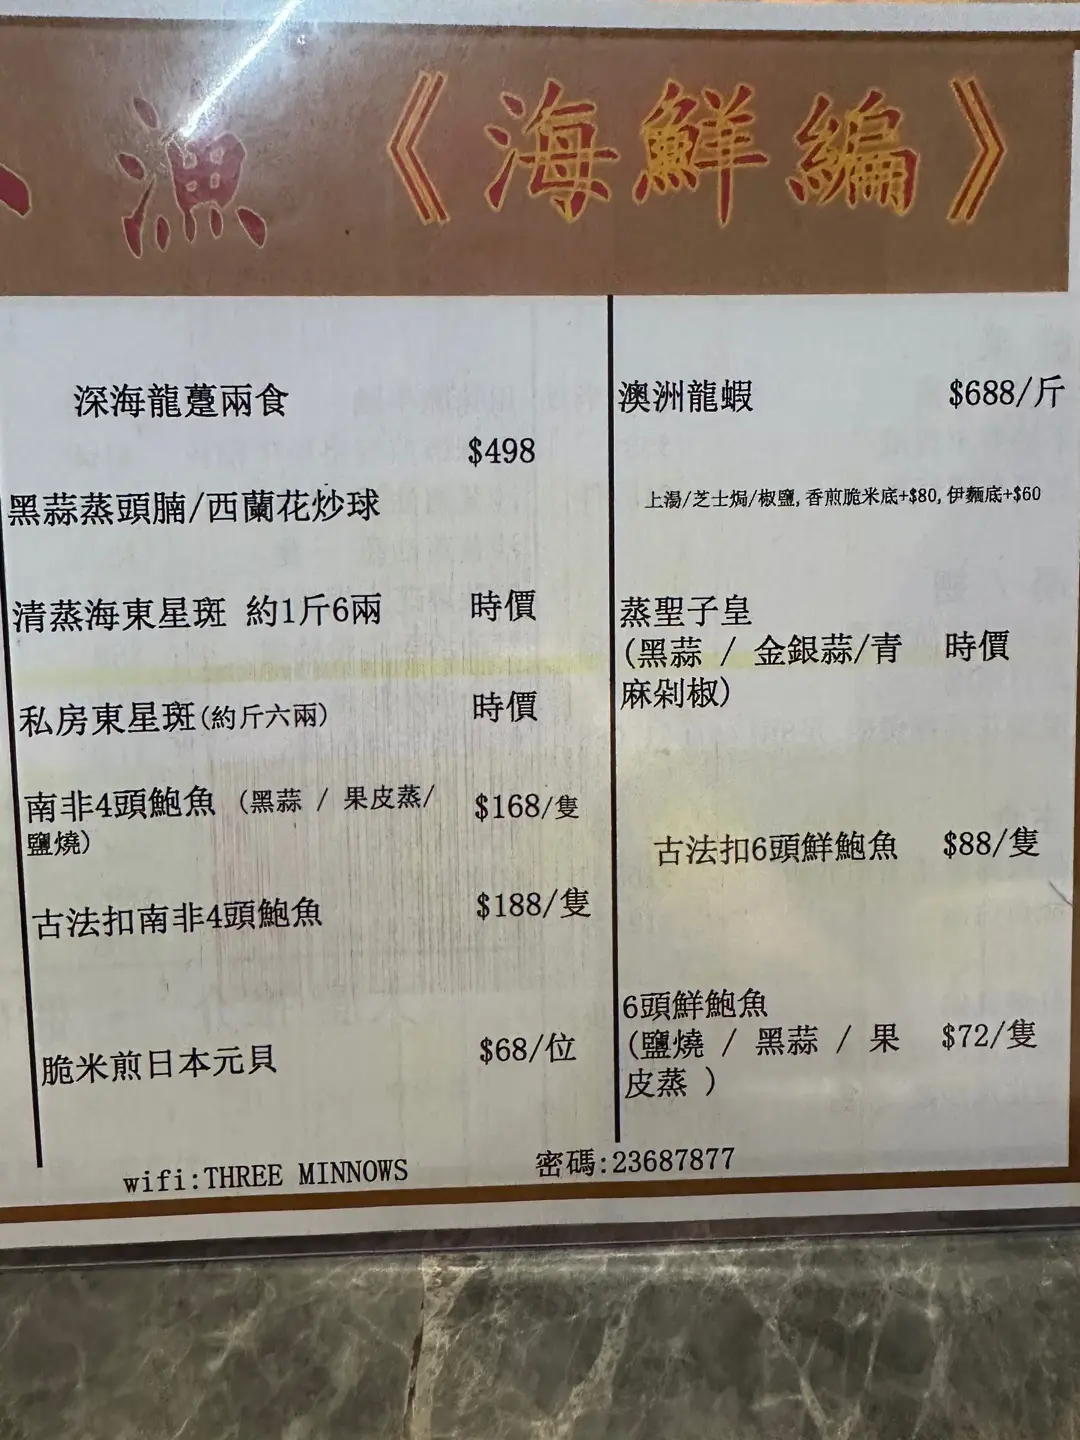 漁《海鮮編》
深海龍躉兩食
$498
黑蒜蒸頭腩/西蘭花炒球
清蒸海東星斑 約1斤6兩 時價
私房東星斑(約斤六兩) 時價
南非4頭鮑魚 (黑蒜 / 果皮蒸/ $168/隻
鹽燒)
古法扣南非4頭鮑魚 $188/隻
脆米煎日本元貝 $68/位
澳洲龍蝦 $688/斤
上湯/芝士焗/椒鹽,香煎脆米底+$80,伊麵底+$60
蒸聖子皇
(黑蒜 / 金銀蒜/青 時價
麻剁椒)
古法扣6頭鮮鮑魚 $88/隻
6頭鮮鮑魚
(鹽燒 / 黑蒜 / 果 $72/隻
皮蒸 )
wifi:THREE MINNOWS 密碼:23687877